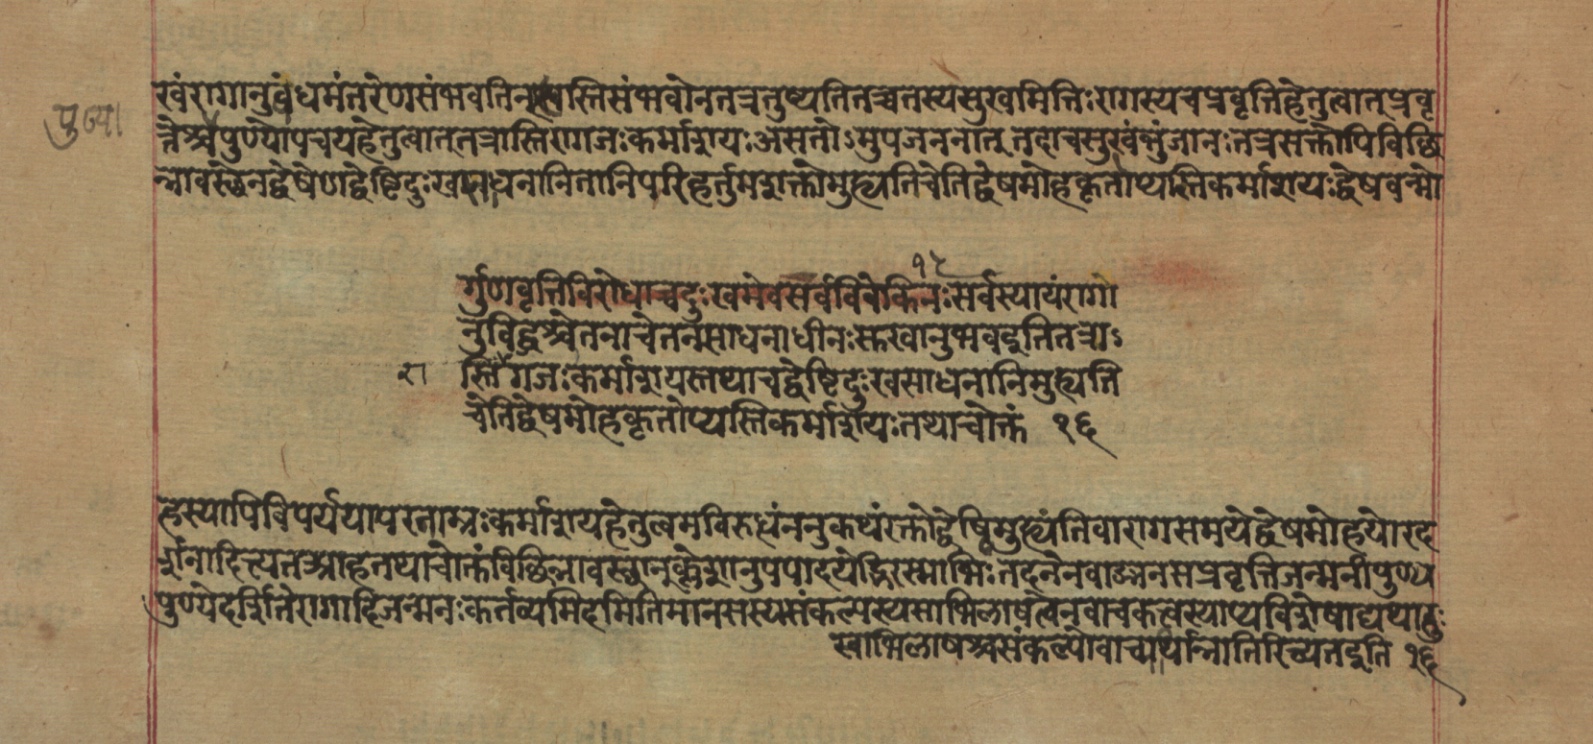 खंरागानुबंधमंतरेणसंभवतिनह्यस्तिसंभवोनतत्रतुष्यतितच्चतस्यसुखमितिःरागस्यचप्रवृत्तिहेतुत्वात्प्रवृ
पुण्या
त्तेश्चपुण्योपचयहेतुत्वात्तत्रास्तिरागजःकर्माशयःअसतोऽमुपजननात् तदाचसुखंभुंजानःतत्रसक्तोपिविछि
न्नावस्छेनद्वेषेणद्वेष्टिदुःखसाधनानितानिपरिहर्तुमशक्तोमुह्यतिचेतिद्वेषमोहकृतोप्यस्तिकर्माशयःद्वेषवन्मो
१५
र्गुणवृत्तिविरोधाच्चदुःखमेवसर्वंविवेकिनःसर्वस्यायंरागो
नुविद्धश्चेतनाचेतनसाधनाधीनःसुखानुभवइतितत्राऽ
रा स्तिगजःकर्माशयस्तथाचद्वेष्टिदुःखसाधनानिमुह्यति
चेतिद्वेषमोहकृतोप्यस्तिकर्माशयःतथाचोक्तं १६
हस्यापिविपर्ययापरनाम्नःकर्माशयहेतुत्वमविरुधंननुकथंरक्तोद्वेष्टिमुह्यंतिवारागसमयेद्वेषमोहयोरद
र्शनादित्त्यतआहतथाचोक्तंविछिन्नावस्छान्क्लेशानुपपादयेद्भिरस्माभिःतदनेनवाङ्मनसप्रवृत्तिजन्मनीपुण्य
पुण्येदर्शितेरागादिजन्मनःकर्तव्यमिदमितिमानसस्यसंकल्पस्यसाभिलाषत्वेनवाचकत्वस्याप्यविशेषाद्यथाहुः
साभिलाषश्चसंकल्पोवाच्यार्थान्नातिरिच्यतइति १६